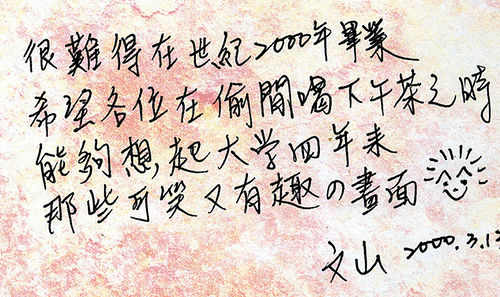 很難得在世紀2000年畢業
希望各位在偷閒喝下午茶之時
能夠想起大学四年来
那些可笑又有趣の畫面
文山 2000.3.13